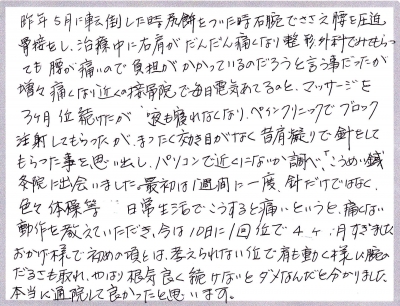 昨年5月に転倒した時尻餅をついた時右腕でささえ腰を圧迫
骨接をし、治療中に右肩がだんだん痛くなり整形外科でみてもらっ
ても腰が痛いので負担がかかっているのだろうと言う事だったが
増々痛くなり近くの接骨院で毎日電気あてるのと、マッサージを
3ヶ月位続けたが 夜も寝れなくなり、ペインクリニックでブロック
注射してもらったが、まったく効き目がなく昔肩凝りで針をして
もらった事を思い出し、パソコンで近くにないか調べ、「こうめい鍼
灸院に出会いました。最初は1週間に一度、針だけではなく、
色々体操等 日常生活でこうすると痛いというと、痛くない
動作を教えていただき、今は10日に1回位で4ヶ月すぎました
おかげ様で初めの頃とは、考えられない位で肩も動く様に腕の
だるさも取れ、やはり根気良く続けないとダメなんだと分かりました
本当に通院して良かったと思います。